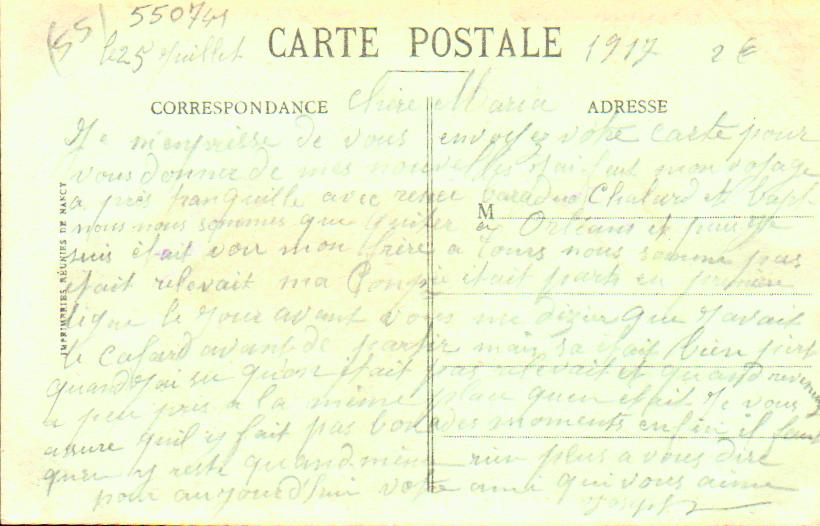 55
550741
le 25 Juillet CARTE POSTALE 1917 2 €
CORRESPONDANCE Chère Maria ADRESSE
Je m'enpresse de vous envoyez votre carte pour
vous donner de mes nouvelles J'ai fait mon voyage
a près tranquille avec rener Chalard et bapt
nous nous sommes que quiter a Orléans et puis je
suis était voir mon frère a Tours nous somme pas
était relevait ma Conpie était parti en première
ligne le jour avant vous me disier que J'avait
le cafard avant de partir mais sa était bien pire
quand J'ai su qu'on était pas relevait et quand
a peu près a la même place quen était Je vous
assure quil y fait pas bon des moments enfin il faut
quen y reste quand même rien plus a vous dire
pour aujourd'hui votre ami qui vous aime
Joseph
M
IMPRIMERIES RÉUNIES DE NANCY